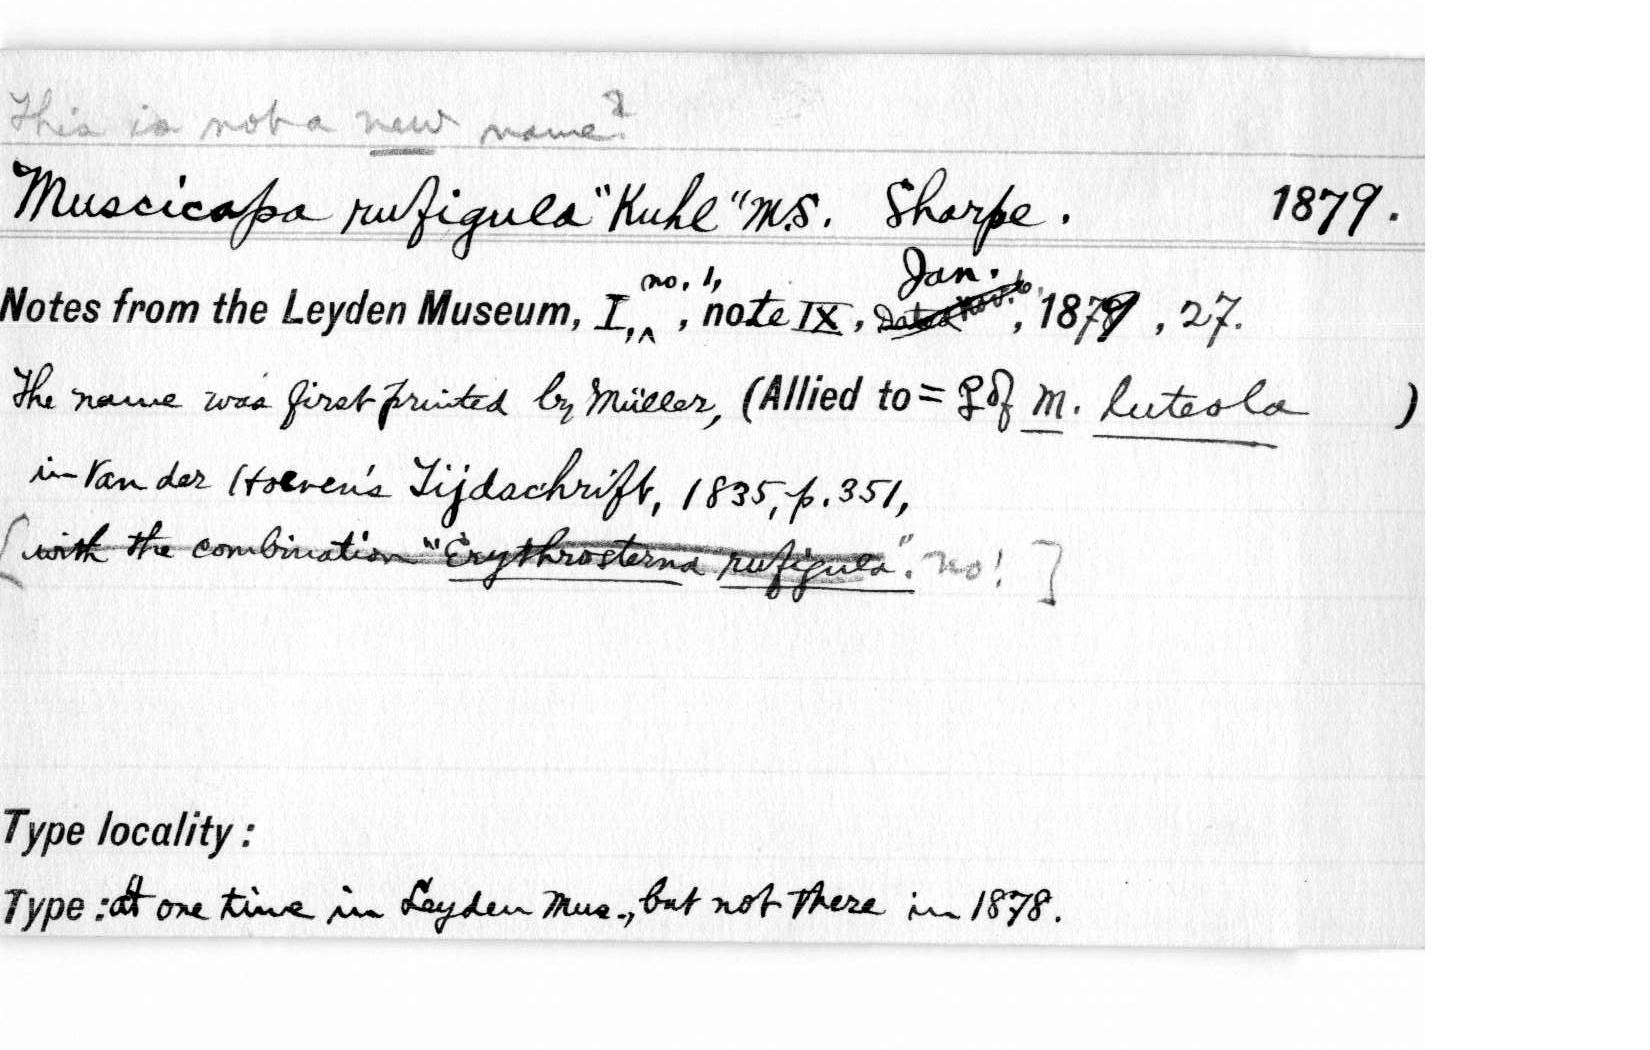 This is not a new name?
Muscicapa rufigula "Kuhl" MS. Sharpe. 1879.
Notes from the Leyden Museum, I, no. 1, , note IX, Jan. Dated Nov. , 1879 , 27.
The name was first printed by Müller, (Allied to = ♀ of M. luteola )
in Van der Hoeven's Tijdschrift, 1835, p. 351,
[with the combination "Erythrosterna rufigula". no! ]
Type locality :
Type : at one time in Leyden Mus., but not there in 1878.